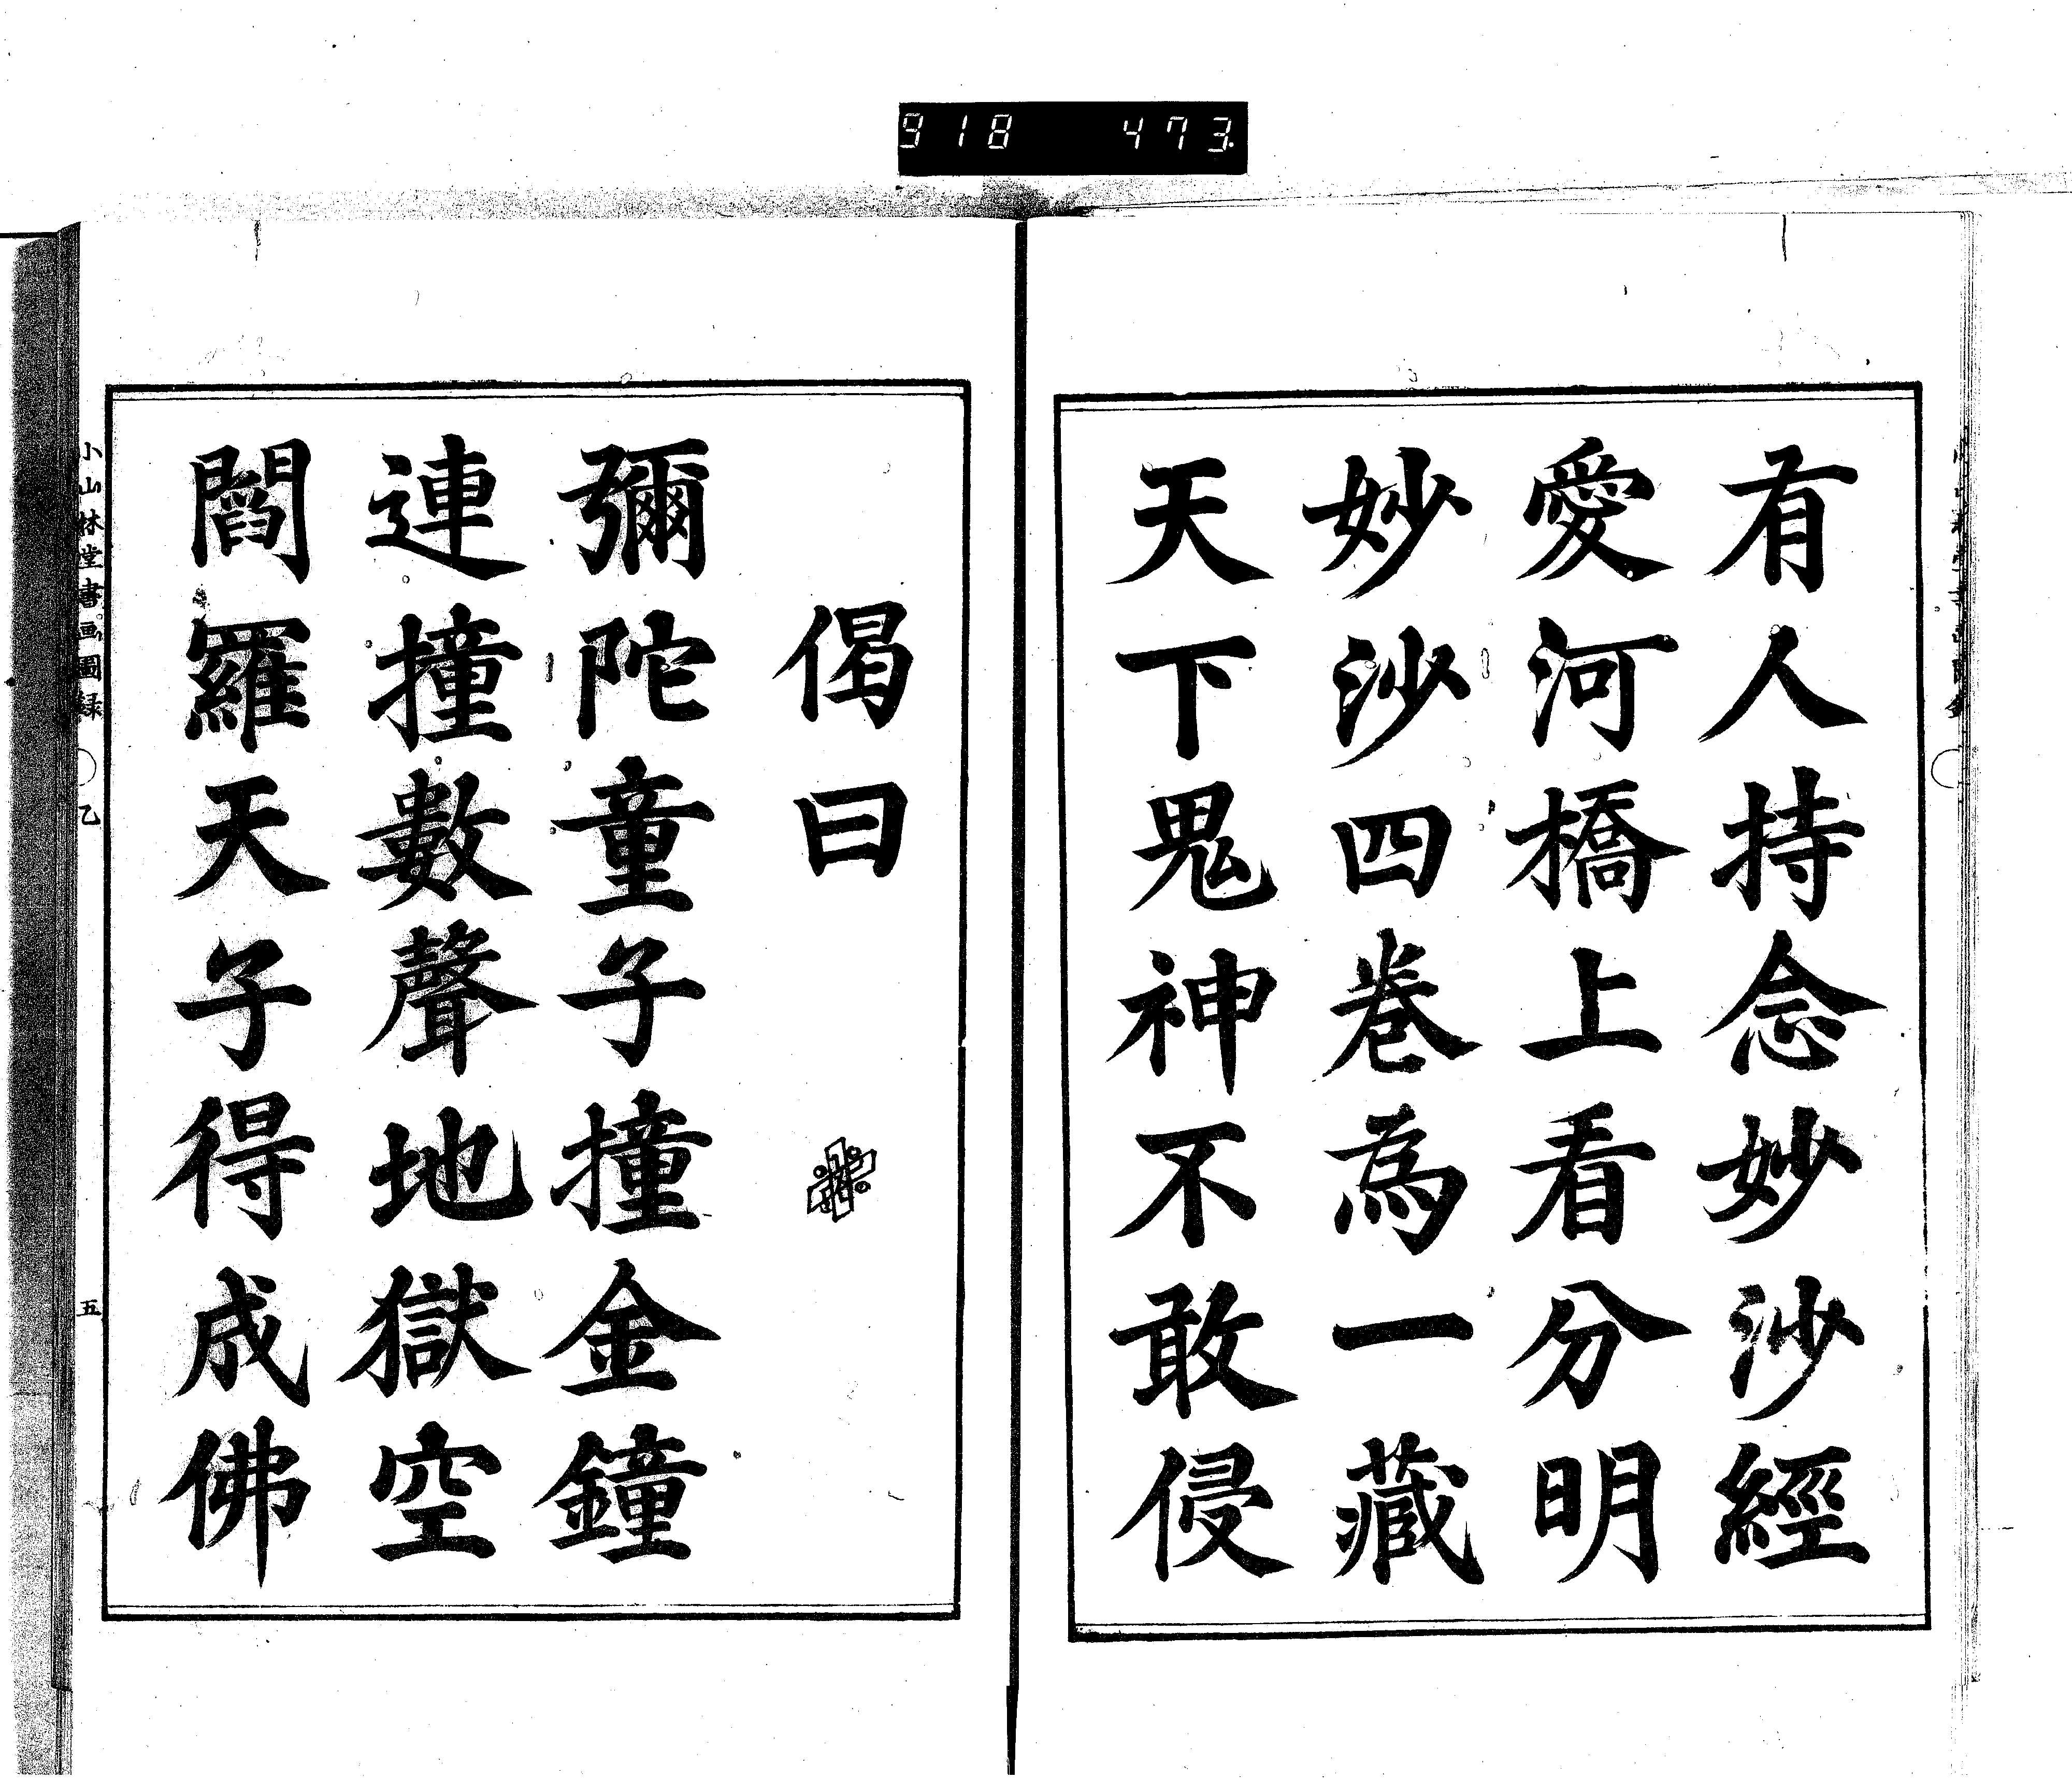 918 473
有人持念妙沙經
愛河橋上看分明
妙沙四卷為一藏
天下鬼神不敢侵
偈曰
彌陀童子撞金鐘
連撞數聲地獄空
閻羅天子得成佛
小山林堂書画圖録 乙 五